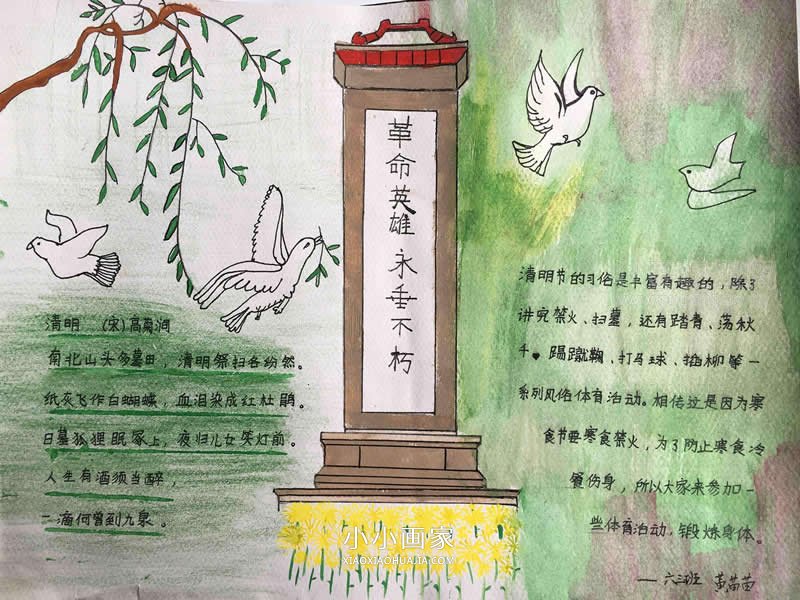 革命英雄永垂不朽
清明 (宋)高菊涧
南北山头多墓田，清明祭扫各纷然。
纸灰飞作白蝴蝶，血泪染成红杜鹃。
日墓狐狸眠冢上，夜归儿女笑灯前。
人生有酒须当醉，
一滴何曾到九泉。
清明节的习俗是丰富有趣的，除了
讲究禁火、扫墓，还有踏青、荡秋
千、踢蹴鞠、打马球、插柳等一
系列风俗体育活动。相传这是因为寒
食节要寒食禁火，为了防止寒食冷
餐伤身，所以大家来参加一
些体育活动，锻炼身体。
——六三班 黄苗苗
小小画家
XIAOXIAOHUAJIA.COM